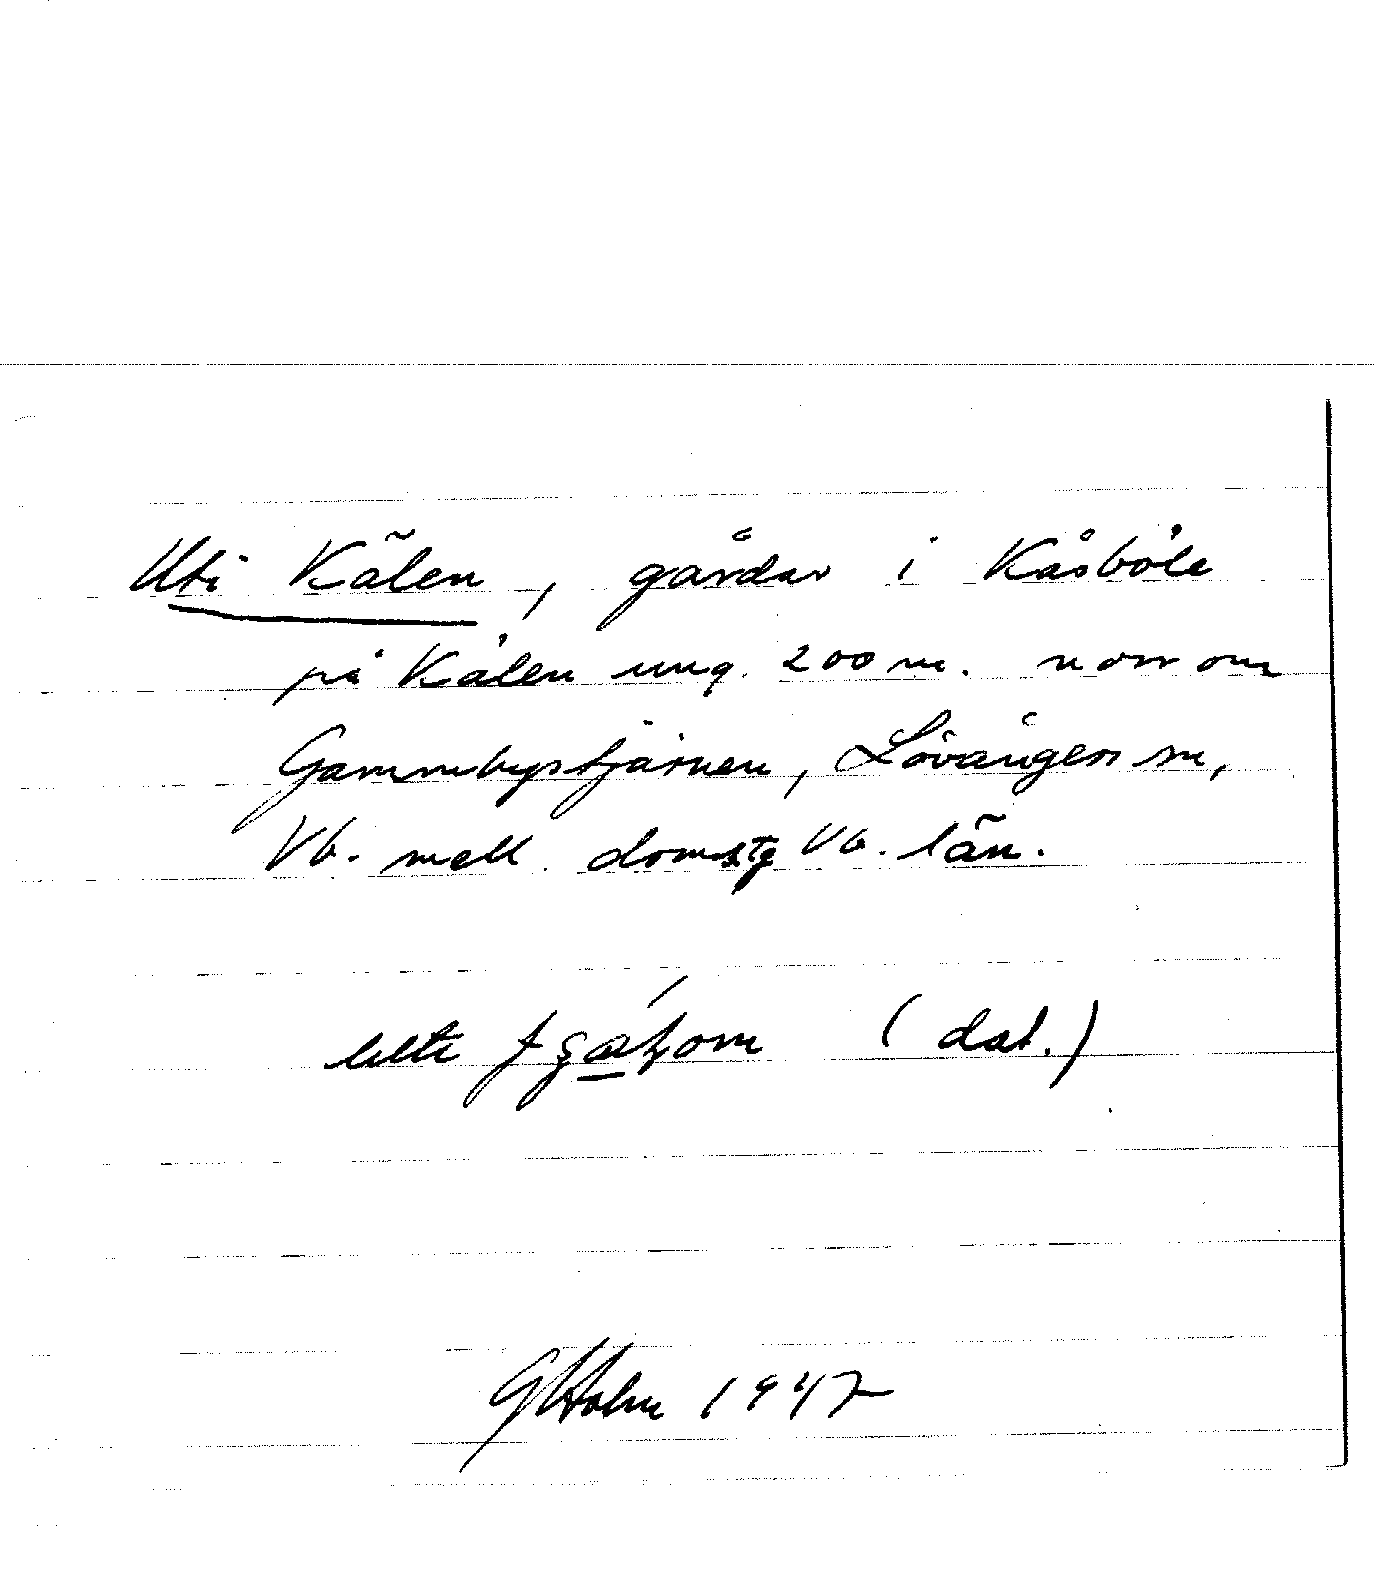 Uti Kälen, gårdar i Kåsböle
på Kälen ung. 200 m. norr om
Gammbystjärnen, Lövånger sn,
Vb. mell. domstg Vb. län.
(dat.)
GHolm 1947